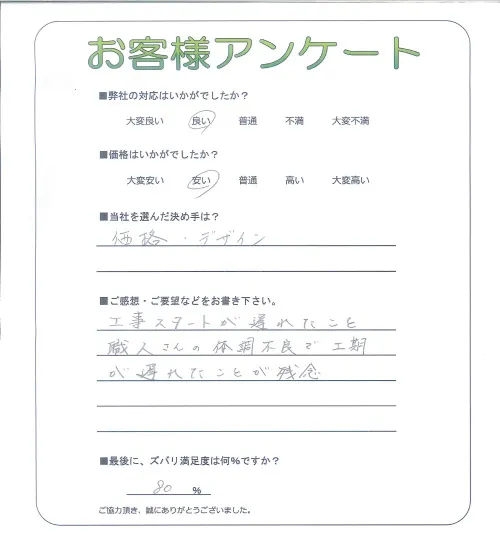 お客様アンケート
■弊社の対応はいかがでしたか？
大変良い 良い 普通 不満 大変不満
■価格はいかがでしたか？
大変安い 安い 普通 高い 大変高い
■当社を選んだ決め手は？
価格・デザイン
■ご感想・ご要望などをお書き下さい。
工事スタートが遅れたこと
職人さんの体調不良で工期
が遅れたことが残念
■最後に、ズバリ満足度は何%ですか？
80 %
ご協力頂き、誠にありがとうございました。